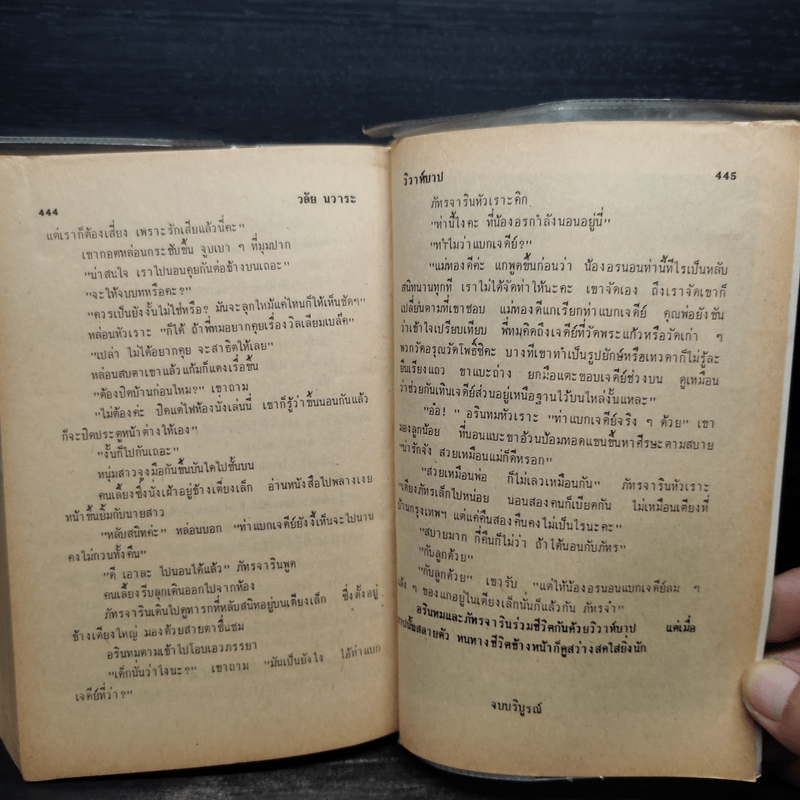 444
วลัย นวาระ
แต่เราก็ต้องเสี่ยง เพราะรักเสียแล้วนี่คะ"
เขากอดหล่อนกระชับขึ้น จูบเบา ๆ ที่มุมปาก
"น่าสนใจ เราไปนอนคุยกันต่อข้างบนเถอะ"
"จะให้จบบทหรือคะ?"
"ควรเป็นยังงั้นไม่ใช่หรือ? มันจะลุกไหม้แค่ไหนก็ให้เห็นชัดๆ"
หล่อนหัวเราะ "ก็ได้ ถ้าพี่ทมอยากคุยเรื่องวิลเลียมเบล๊ค"
"เปล่า ไม่ได้อยากคุย จะสาธิตให้เลย"
หล่อนสบตาเขาแล้ว แก้มก็แดงเรื่อขึ้น
"ต้องปิดบ้านก่อนไหม?" เขาถาม
"ไม่ต้องค่ะ ปิดแต่ไฟห้องนั่งเล่นนี้ เขาก็รู้ว่าขึ้นนอนกันแล้ว
ก็จะปิดประตูหน้าต่างให้เอง"
"งั้นก็ไปกันเถอะ"
หนุ่มสาวจูงมือกันขึ้นบันไดไปชั้นบน
คนเลี้ยงซึ่งนั่งเฝ้าอยู่ข้างเตียงเล็ก อ่านหนังสือไปพลางเงย
หน้าขึ้นยิ้มกับนายสาว
"หลับสนิทค่ะ" หล่อนบอก "ท่าแบกเจดีย์ยังงี้เห็นจะไปนาน
คงไม่กวนทั้งคืน"
"ดี เอาละ ไปนอนได้แล้ว" ภัทรจารินพูด
คนเลี้ยงรีบลุกเดินออกไปจากห้อง
ภัทรจารินเดินไปดูทารกที่หลับสนิทอยู่บนเตียงเล็ก ซึ่งตั้งอยู่
ข้างเตียงใหญ่ มองด้วยสายตาชื่นชม
อรินทมตามเข้าไปโอบเอวภรรยา
"เด็กนั่นว่าไงนะ?" เขาถาม "มันเป็นยังไง ไอ้ท่าแบก
เจดีย์ที่ว่า?"
วิวาห์บาป
445
ภัทรจารินหัวเราะคิก
"ท่านี้ไงคะ ที่น้องอรกำลังนอนอยู่นี่"
"ทำไมว่าแบกเจดีย์?"
"แม่ทองดีค่ะ แกพูดขึ้นก่อนว่า น้องอรนอนท่านี้ทีไรเป็นหลับ
สนิทนานทุกที เราไม่ได้จัดท่าให้นะคะ เขาจัดเอง ถึงเราจัดเขาก็
เปลี่ยนตามที่เขาชอบ แม่ทองดีแกเรียกท่าแบกเจดีย์ คุณพ่อยังขัน
ว่าเข้าใจเปรียบเทียบ พี่ทมคิดถึงเจดีย์ที่วัดพระแก้วหรือวัดเก่า ๆ
พวกวัดอรุณวัดโพธิ์ซิคะ บางทีเขาทำเป็นรูปยักษ์หรือเทวดาก็ไม่รู้ละ
ยืนเรียงแถว ขาแบะถ่าง ยกมือแตะขอบเจดีย์ช่วงบน ดูเหมือน
ว่าช่วยกันเทินเจดีย์ส่วนอยู่เหนือฐานไว้บนไหล่งั้นแหละ"
"อ๋อ!" อรินทมหัวเราะ "ท่าแบกเจดีย์จริง ๆ ด้วย" เขา
มองลูกน้อย ที่นอนแบะขาอ้วนป้อมทอดแขนขึ้นหาศีรษะตามสบาย
"น่ารักจัง สวยเหมือนแม่ก็ดีหรอก"
"สวยเหมือนพ่อ ก็ไม่เลวเหมือนกัน" ภัทรจารินหัวเราะ
"เตียงภัทรเล็กไปหน่อย นอนสองคนก็เบียดกัน ไม่เหมือนเตียงที่
บ้านกรุงเทพฯ แต่แค่คืนสองคืนคงไม่เป็นไรนะคะ"
"สบายมาก กี่คืนก็ไม่ว่า ถ้าได้นอนกับภัทร"
"กับลูกด้วย"
"กับลูกด้วย" เขารับ "แต่ให้น้องอรนอนแบกเจดีย์ลม ๆ
แล้ง ๆ ของแกอยู่ในเตียงเล็กนั่นก็แล้วกัน ภัทรจ๋า"
อรินทมและภัทรจารินร่วมชีวิตกันด้วยวิวาห์บาป แต่เมื่อ
บาปนั้นสลายตัว หนทางชีวิตข้างหน้าก็ดูสว่างสดใสยิ่งนัก
จบบริบูรณ์